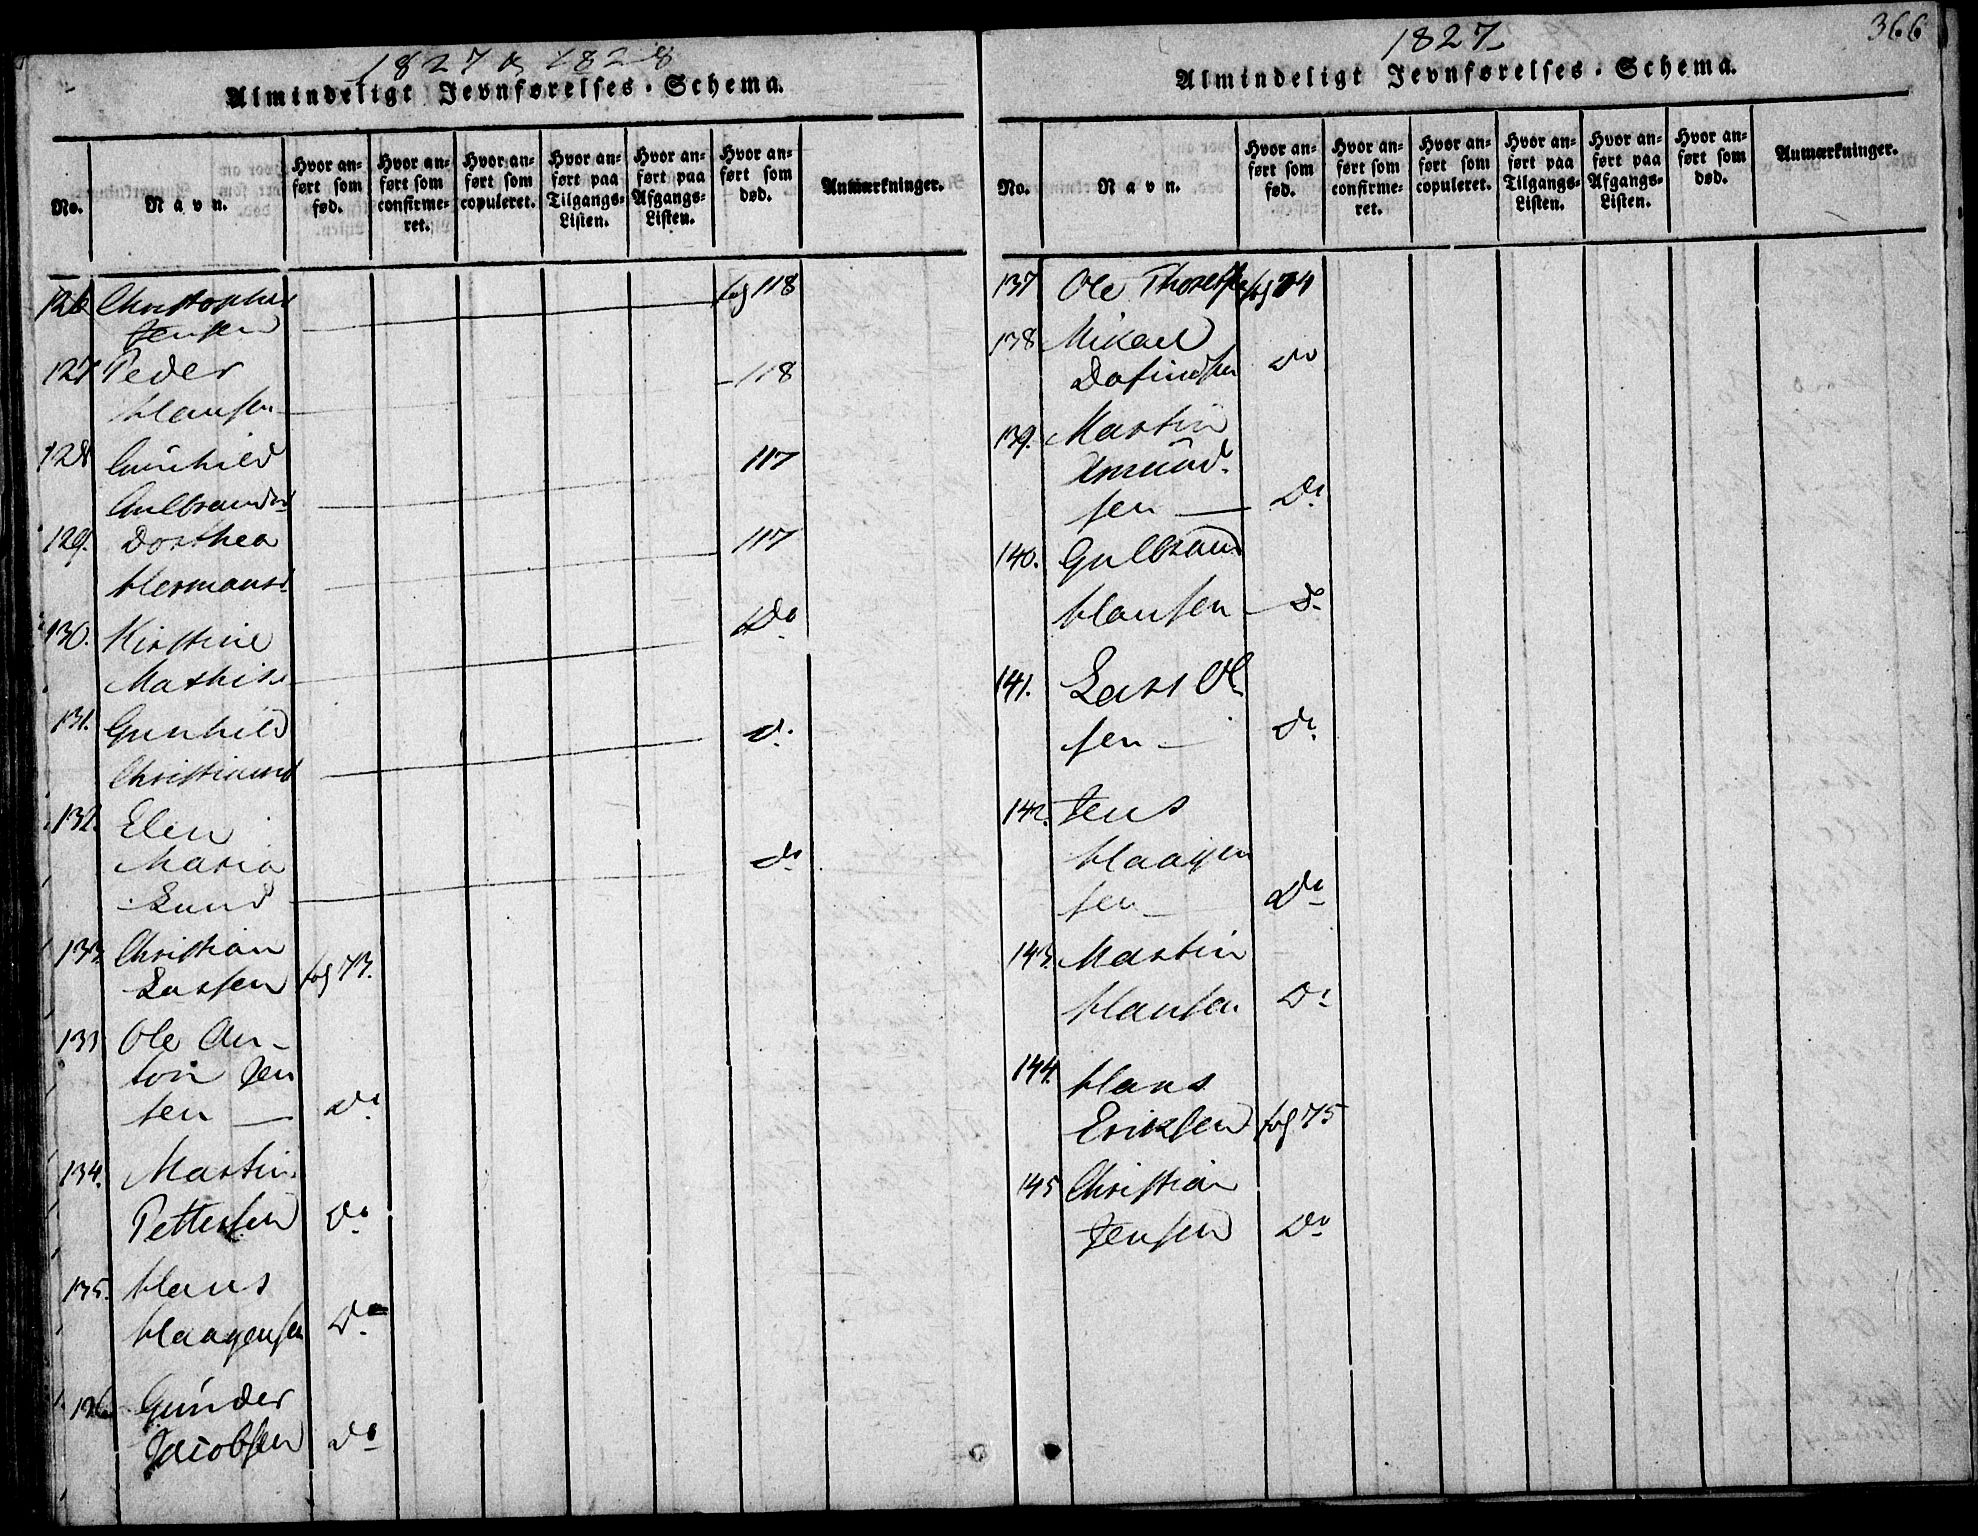 1827 & 1828
Almindeligt Jevnførelses-Schema.
No.
Navn.
Hvor anført som fød.
Hvor anført som confirmeret.
Hvor anført som copuleret.
Hvor anført paa Tilgangs-Listen.
Hvor anført paa Afgangs-Listen.
Hvor anført som død.
Anmærkninger.
126 Christopher fog 118
Jensen
127 Peder - 118
Hansen
128 Gunhild 117
Gulbrandsd
129. Dorthea 117
Hermansd
130. Kirstine Do
Mathisd
131. Gunhild do
Christiansd
132. Elen
Maria do
Lund
133. Christian
Larsen fog 73.
133 Ole An-
ton Jen
sen — Do
134. Martin
Pettersen Do
135. Hans
Haagensen Do
136 Gunder
Jacobsen Do
1827
366
Almindeligt Jevnførelses-Schema.
No.
Navn.
Hvor anført som fød.
Hvor anført som confirmeret.
Hvor anført som copuleret.
Hvor anført paa Tilgangs-Listen.
Hvor anført paa Afgangs-Listen.
Hvor anført som død.
Anmærkninger.
137 Ole Thoresen fog 74
138 Mikael
Dafindsen Do
139. Martin
Amund-
sen — Do
140. Gulbrand
Hansen — Do
141. Lars Ol
sen — Do
142. Jens
Haagen
sen — Do
143. Martin
Hansen Do
144. Hans
Eriksen fog 75
145 Christian
Jensen Do